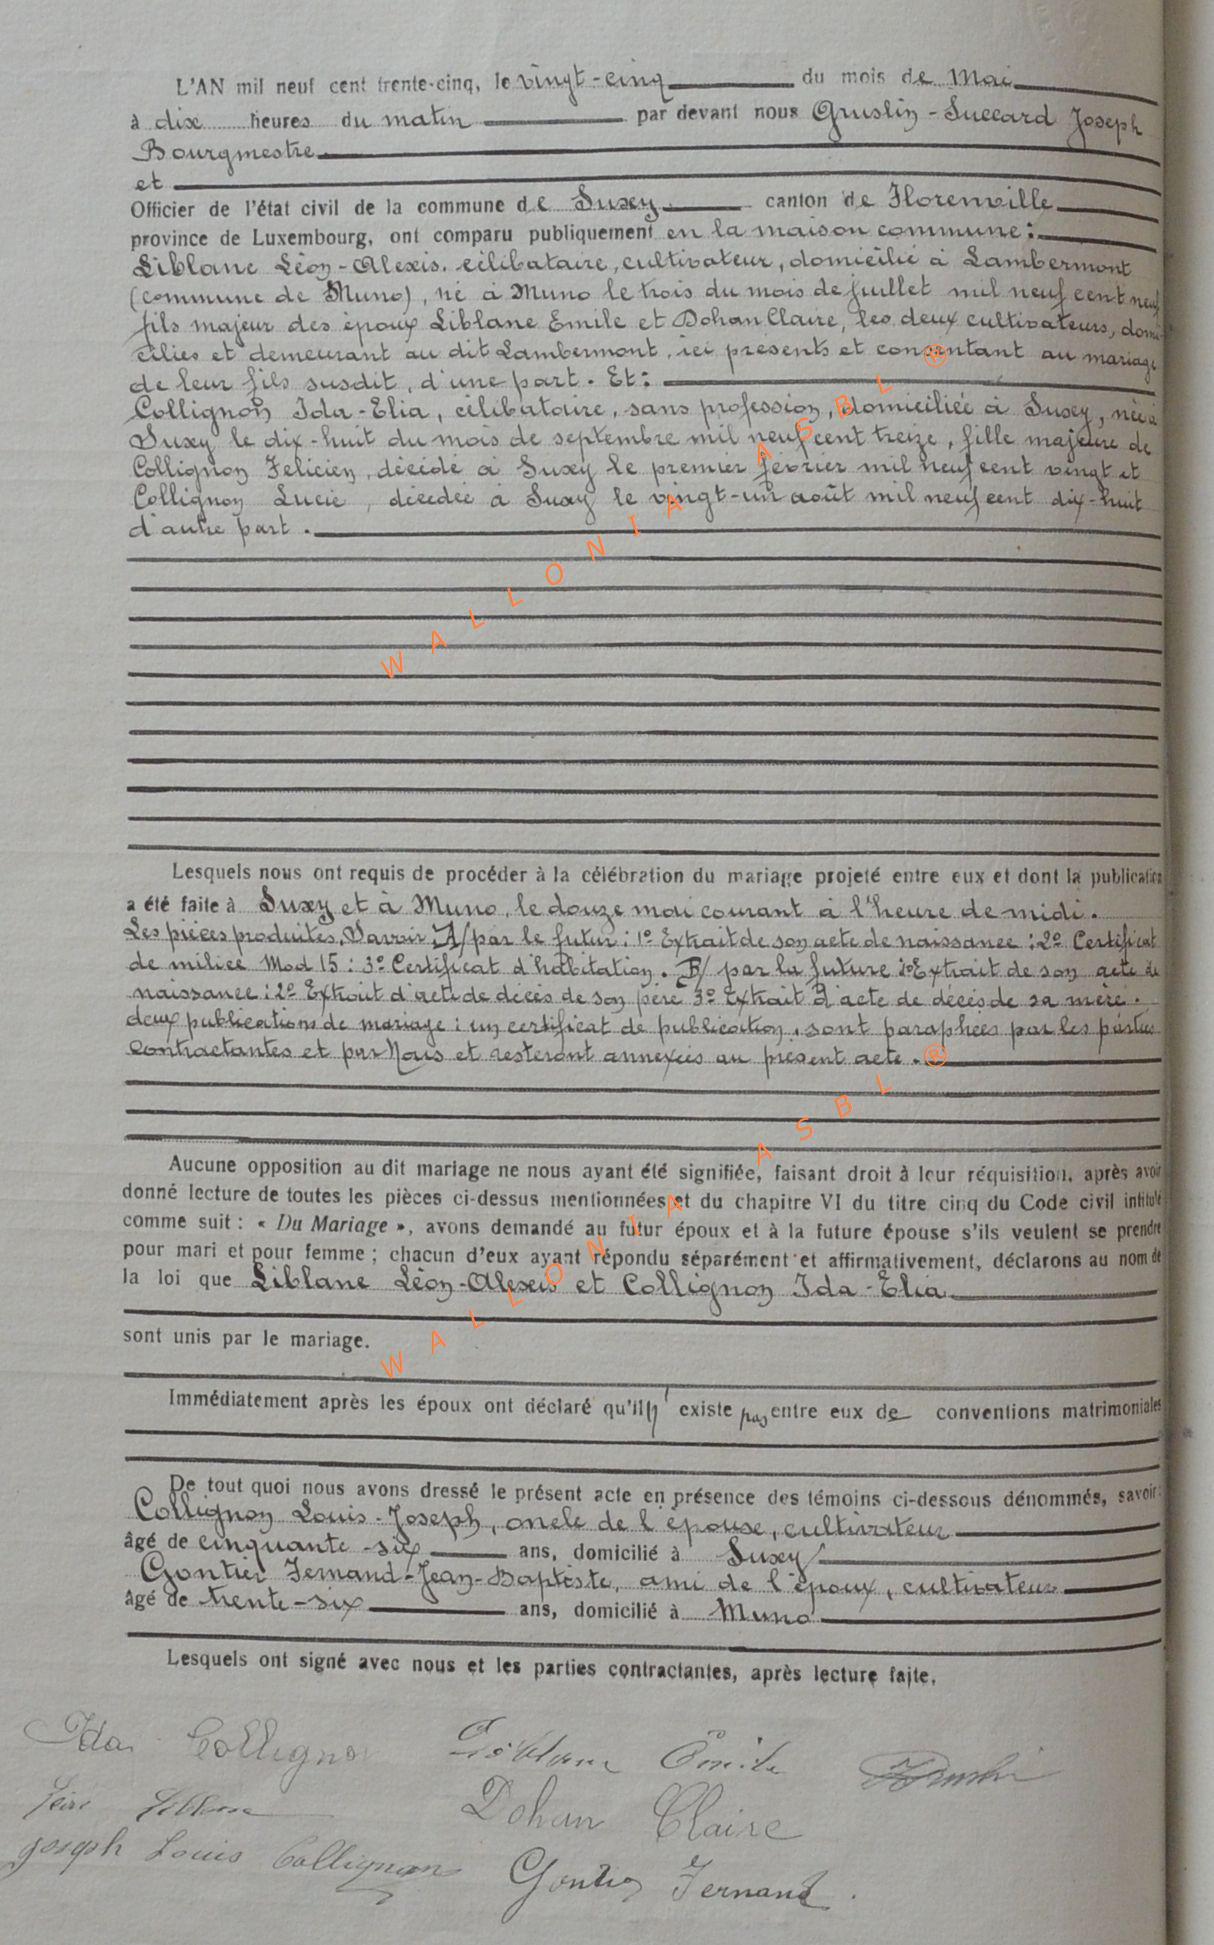 L'AN mil neuf cent trente-cinq, le vingt-cinq du mois de Mai
à dix heures du matin par devant nous Gruslin-Succard Joseph
Bourgmestre
et
Officier de l'état civil de la commune de Suxy canton de Florenville
province de Luxembourg, ont comparu publiquement en la maison commune :
Liblanc Léon-Alexis, célibataire, cultivateur, domicilié à Lambermont
(commune de Muno), né à Muno le trois du mois de juillet mil neuf cent neuf
fils majeur des époux Liblanc Emile et Dohan Claire, les deux cultivateurs, domi-
ciliés et demeurant au dit Lambermont, ici présents et consentant au mariage
de leur fils susdit, d'une part. Et :
Collignon Ida-Elia, célibataire, sans profession, domiciliée à Suxy, née à
Suxy le dix-huit du mois de septembre mil neuf cent treize, fille majeure de
Collignon Felicien, décédé à Suxy le premier février mil neuf cent vingt et
Collignon Lucie, décédée à Suxy le vingt-un août mil neuf cent dix-huit
d'autre part.
WALLONIA ASBL ®
Lesquels nous ont requis de procéder à la célébration du mariage projeté entre eux et dont la publication
a été faite à Suxy et à Muno, le douze mai courant à l'heure de midi.
Les pièces produites, Savoir : A/ par le futur : 1º Extrait de son acte de naissance : 2º Certificat
de milice Mod 15 : 3º Certificat d'habitation. B/ par la future 1º Extrait de son acte de
naissance : 2º Extrait d'acte de décès de son père 3º Extrait d'acte de décès de sa mère.
deux publications de mariage : un certificat de publication, sont paraphées par les parties
contractantes et par Nous et resteront annexées au présent acte.
WALLONIA ASBL ®
Aucune opposition au dit mariage ne nous ayant été signifiée, faisant droit à leur réquisition, après avoir
donné lecture de toutes les pièces ci-dessus mentionnées et du chapitre VI du titre cinq du Code civil intitulé
comme suit : « Du Mariage », avons demandé au futur époux et à la future épouse s'ils veulent se prendre
pour mari et pour femme ; chacun d'eux ayant répondu séparément et affirmativement, déclarons au nom de
la loi que Liblanc Léon-Alexis et Collignon Ida-Elia
sont unis par le mariage.
Immédiatement après les époux ont déclaré qu'il n'existe pas entre eux de conventions matrimoniales
De tout quoi nous avons dressé le présent acte en présence des témoins ci-dessous dénommés, savoir :
Collignon Louis-Joseph, oncle de l'épouse, cultivateur
âgé de cinquante-six ans, domicilié à Suxy
Gontier Fernand-Jean-Baptiste, ami de l'époux, cultivateur
âgé de trente-six ans, domicilié à Muno
Lesquels ont signé avec nous et les parties contractantes, après lecture faite.
Ida Collignon Liblanc Emile
Liblanc Dohan Claire
Joseph Louis Collignon Gontier Fernand.